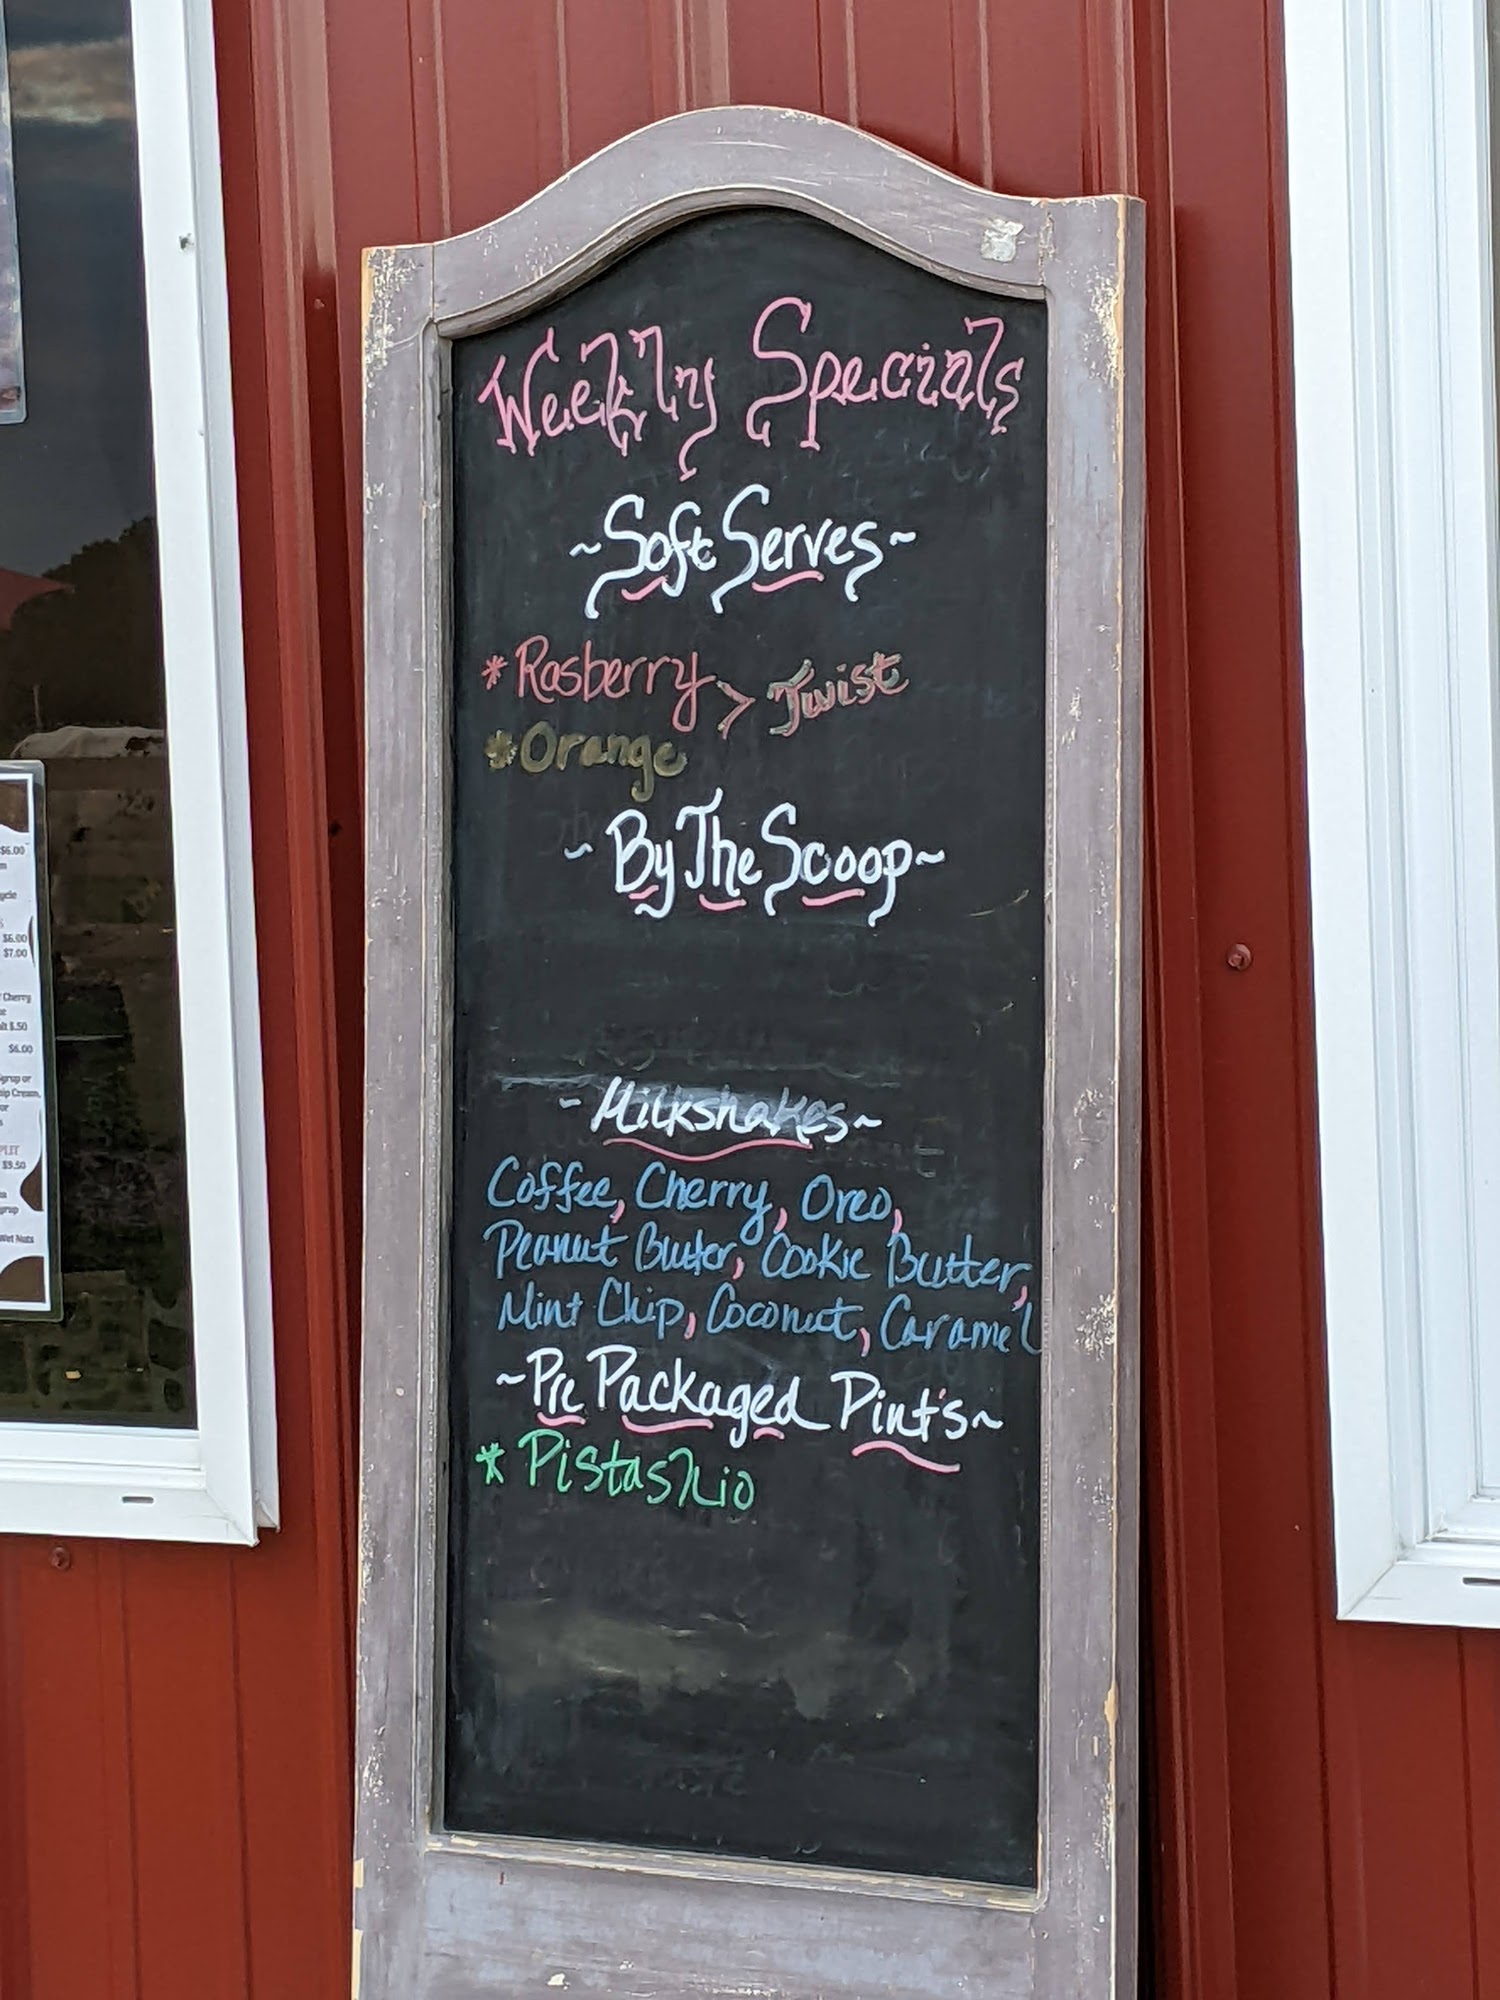 Weekly Specials
~Soft Serves~
* Rasberry > Twist
* Orange
~ By The Scoop~
~Milkshakes~
Coffee, Cherry, Oreo,
Peanut Butter, Cookie Butter,
Mint Chip, Coconut, Caramel
~Pre Packaged Pint's~
* Pistashio
$6.00
$6.00
$7.00
Cherry
$.50
$6.00
Syrup or
Cream,
or
$9.50
Wet Nuts